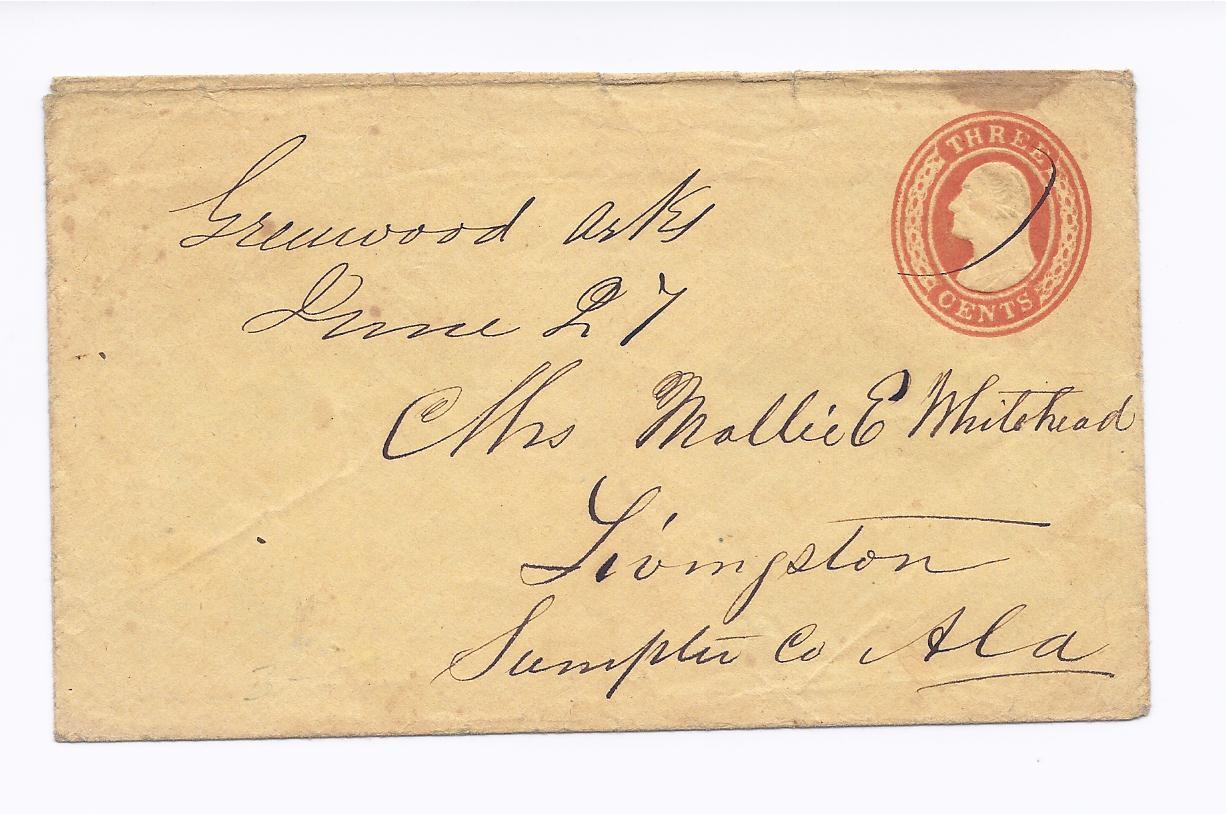 THREE
CENTS
Greenwood Arks
June 27
Mrs Mollie E Whitehead
Livingston
Sumpter Co Ala